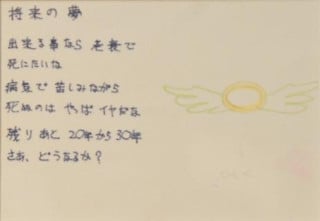 将来の夢
出来る事なら 老衰で
死にたいな
病気で 苦しみながら
死ぬのは やっぱ イヤかな
残り あと 20年から30年
さあ、どうなるか？